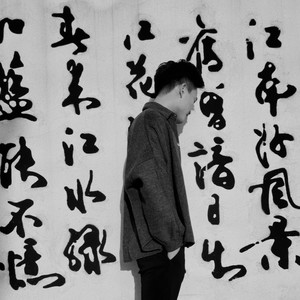 江南好風景
舊曾諳日出
江花
春來江水綠
如藍能不憶